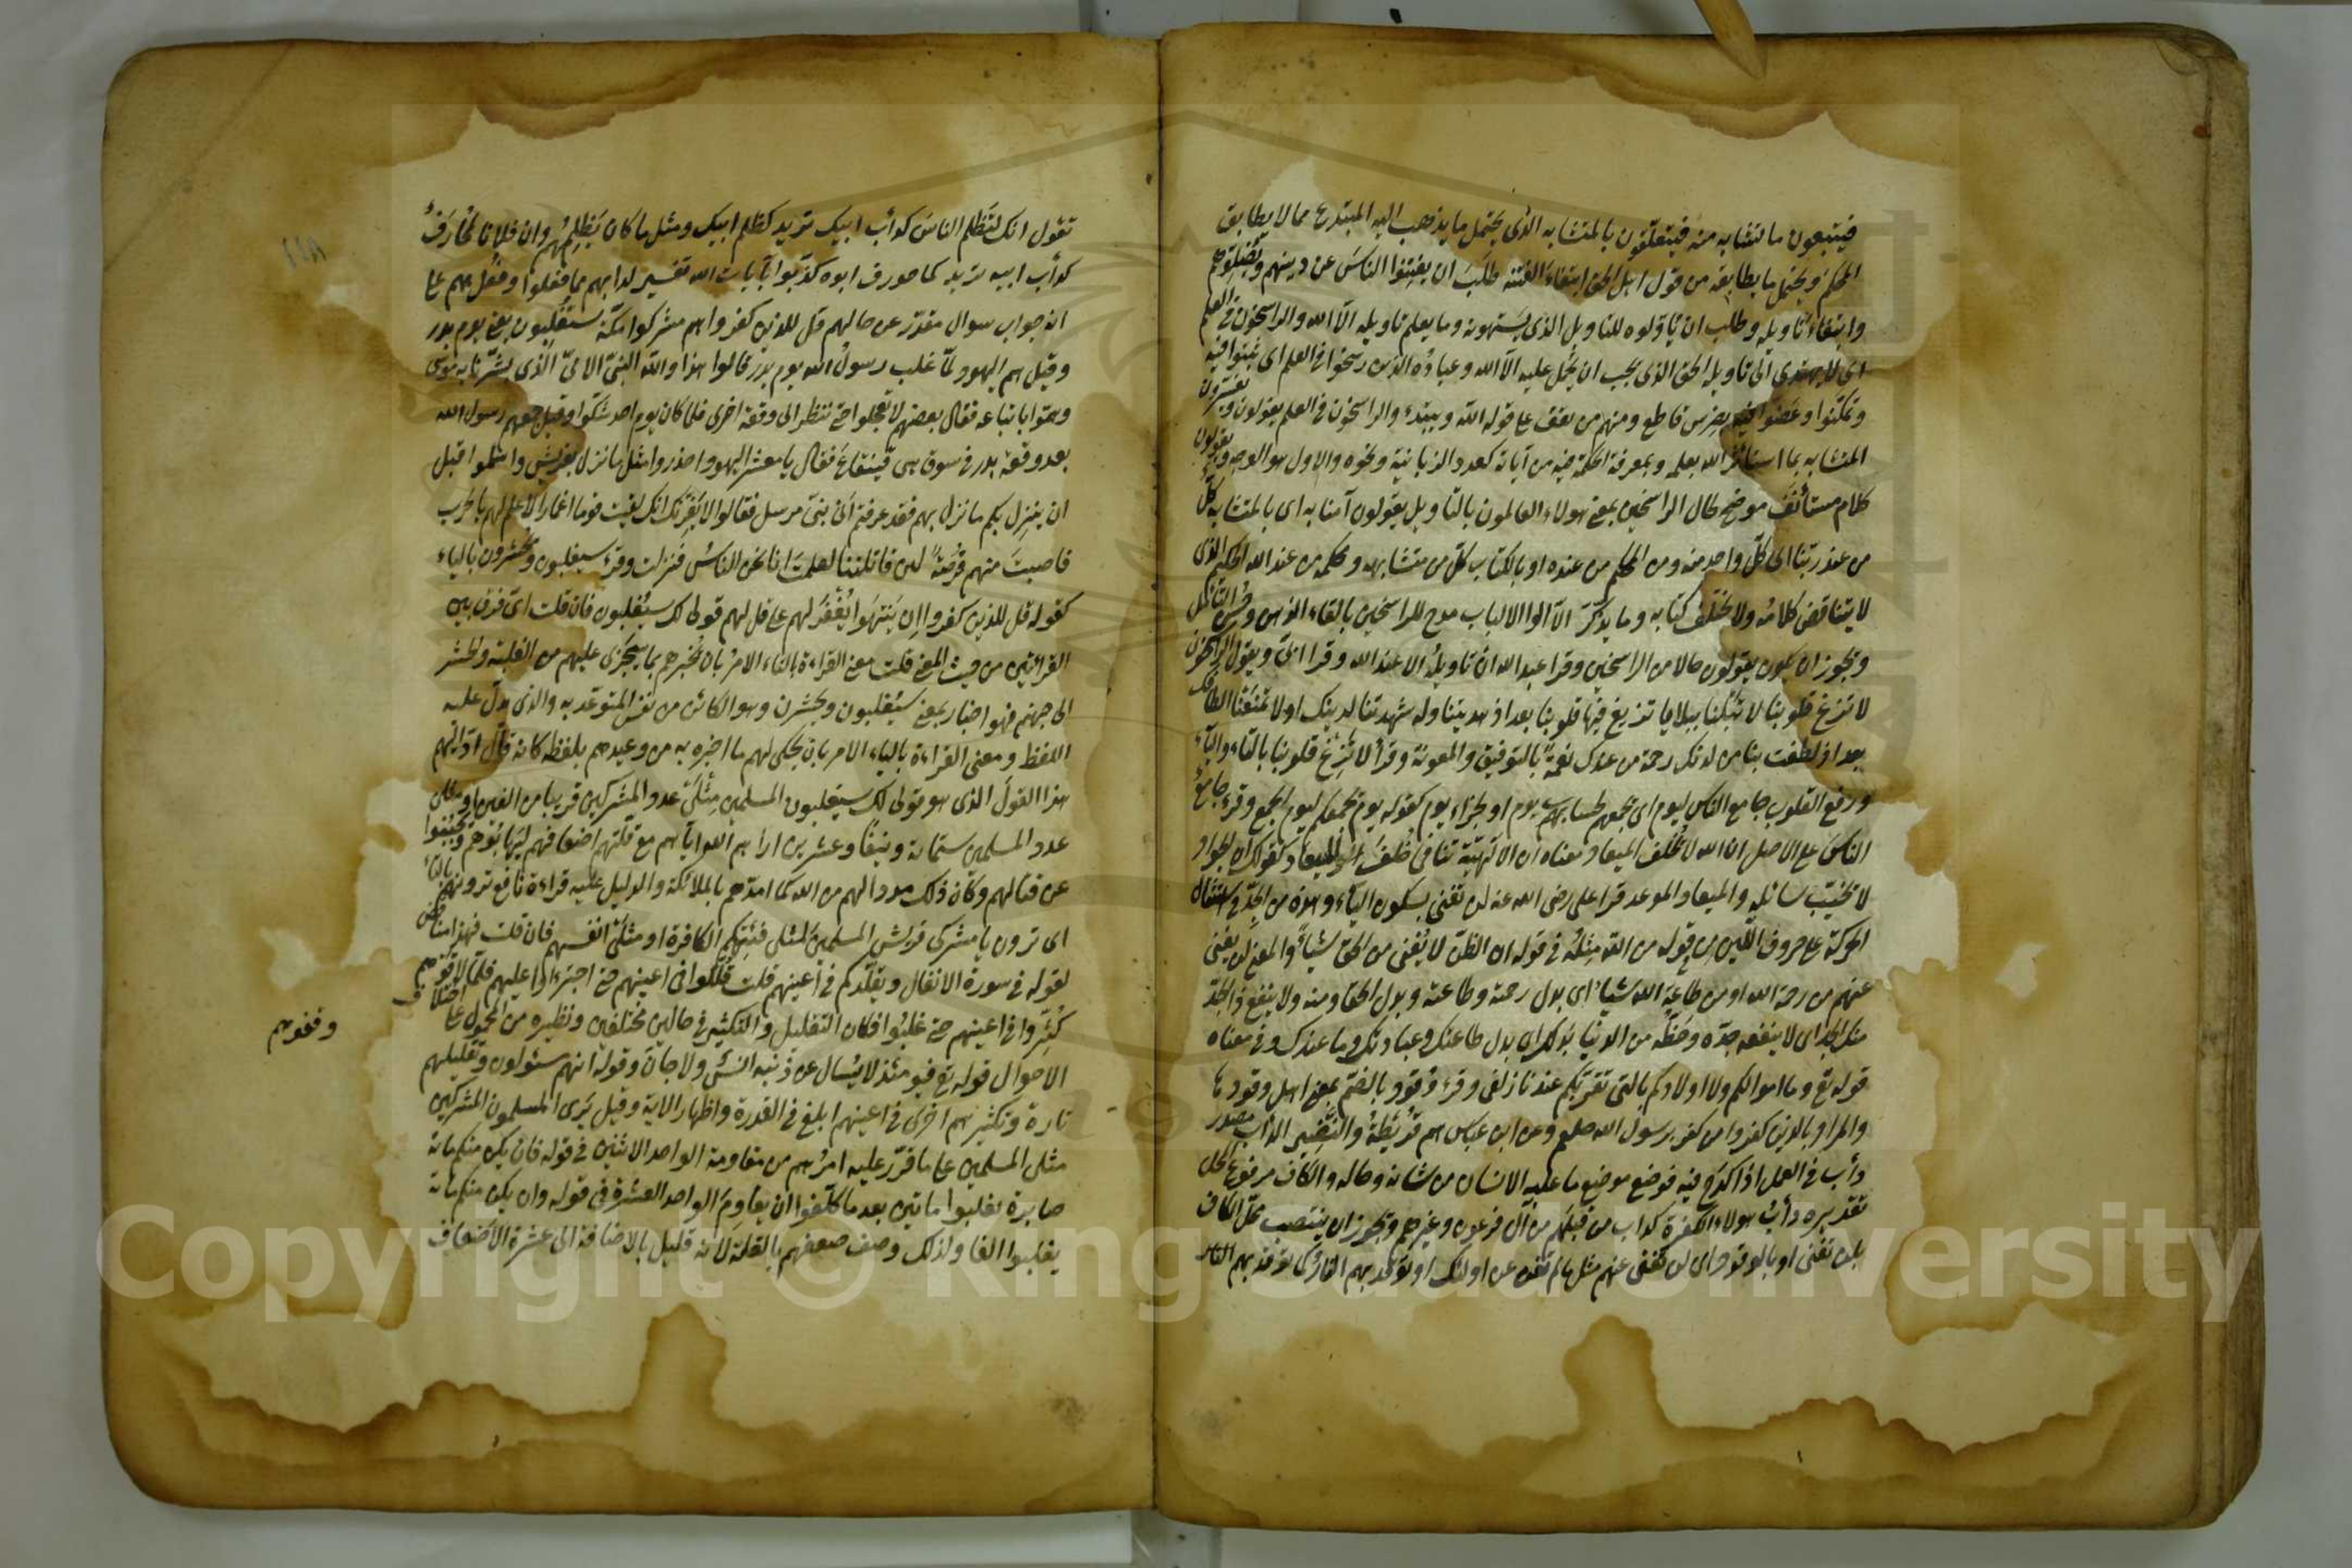 فيتبعون ما تشابه منه فيتعلقون بالمتشابه الذى يحتمل ما يذهب اليه المبتدع مما لا يطابق
المحكم ويحتمل ما يطابقه من قول اهل الحق ابتغاء الفتنة طلب ان يفتنوا الناس عن دينهم ويضلوهم
وابتغاء تأويله وطلب ان يأوّلوه التاويل الذى يشتهونه وما يعلم تاويله الا الله والراسخون فى العلم
اى لا يهتدى الى تاويله الحق الذى يجب ان يحمل عليه الا الله وعباده الذين رسخوا فى العلم اى ثبتوا فيه
وتمكنوا وعضوا فيه بضرس قاطع ومنهم من يقف على قوله الا الله ويبتدء والراسخون فى العلم يقولون ويفسرون
المتشابه بما استاثر الله بعلمه وبمعرفة الحكمة فيه من آياته كعدد الزبانية ونحوه والاول هو الوجه ويقولون
كلام مستأنف موضح لحال الراسخين بمعنى هولاء العالمون بالتاويل يقولون آمنا به اى بالمتشابه كلّ
من عند ربنا اى كلّ واحد منه ومن المحكم من عنده او بالكتاب كلّ من متشابهه ومحكمه من عند الله الحكيم الذى
لا يتناقض كلامه ولا يختلف كتابه وما يذكّر الا اولوا الالباب مدح للراسخين بالقاء الذهن وحسن التأمل
ويجوز ان يكون يقولون حالا من الراسخين وقرا عبد الله ان تاويله الا عند الله وقرا ابىّ ويقول الراسخون
لا تزغ قلوبنا لا تبلنا ببلايا تزيغ فيها قلوبنا بعد اذ هديتنا وارشدتنا لدينك او لا تمنعنا الطافك
بعد اذ لطفت بنا من لدنك رحمة من عندك نعمة بالتوفيق والمعونة وقرأ لا تزغ قلوبنا بالتاء والياء
ورفع القلوب جامع الناس ليوم اى تجمعهم لحساب يوم او لجزاء يوم كقوله يوم يجمعكم ليوم الجمع وقرء جامع
الناس على الاصل ان الله لا يخلف الميعاد معناه ان الالهيّة تنافى خلف الميعاد كقولك ان الجواد
لا يخيّب سائله والميعاد الموعد قرا على رضى الله عنه لن تغنى بسكون الياء وهذه من الجدّ فى استثقال
الحركة على حروف اللين من قوله من الله مثله فى قوله ان الظن لا يغنى من الحق شيأ والمعنى لن يغنى
عنهم من رحمة الله او من طاعة الله شيأ اى بدل رحمته وطاعته وبدل الحق ومنه ولا ينفع ذا الجدّ
منك الجد اى لا ينفعه جدّه وحظّه من الدنيا بذلك اى بدل طاعتك وعبادتك وما عندك وفى معناه
قوله تع وما اموالكم ولا اولادكم بالتى تقربكم عندنا زلفى وقرء وقود بالضم بمعنى اهل وقودها
والمراد بالذين كفروا من كفر برسول الله صلعم وعن ابن عباس هم قريظة والنضير الدأب مصدر
دأب فى العمل اذا كدح فيه فوضع موضع ما عليه الانسان من شانه وحاله والكاف مرفوع المحل
تقديره دأب هولاء الكفرة كداب من قبلهم من آل فرعون وغيرهم ويجوز ان ينتصب محل الكاف
بلن تغنى او بالوقود اى لن تغنى عنهم مثل ما لم تغن عن اولئك او توقد بهم النار كما توقد بهم النار
تقول انك لتظلم الناس كدأب ابيك تريد كظلم ابيك ومثل ما كان يظلمهم وان فلانا لمحارف
كدأب ابيه تريد كما حورف ابوه كذبوا بآياتنا تفسير لدابهم مما فعلوا وفعل بهم على
انه جواب سوال مقدّر عن حالهم قل للذين كفروا هم مشركوا مكّة ستغلبون يعنى يوم بدر
وقيل هم اليهود لمّا غلب رسول الله يوم بدر قالوا هذا والله النبىّ الامىّ الذى بشّرنا به موسى
وهمّوا باتباعه فقال بعضهم لا تعجلوا حتى ننظر الى وقعة اخرى فلما كان يوم احد شكّوا وقيل جمعهم رسول الله
بعد وقعة بدر فى سوق بنى قينقاع فقال يا معشر اليهود احذروا مثل ما نزل بقريش واسلموا قبل
ان ينزل بكم ما نزل بهم فقد عرفتم انى نبىّ مرسل فقالوا لا يغرنّك انك لقيت قوما اغمارا لا علم لهم بالحرب
فاصبت منهم فرصة لئن قاتلتنا لعلمت انا نحن الناس فنزلت وقرء سيغلبون ويحشرون بالياء
كقوله قل للذين كفروا ان ينتهوا يغفر لهم على قل لهم قولى لك سيغلبون فان قلت اىّ فرق بين
القرائتين من حيث المعنى قلت معنى القراءة بالتاء الامر بان يخبرهم بما سيجرى عليهم من الغلبة والحشر
الى جهنم فهو اخبار بمعنى ستغلبون وتحشرون وهو الكائن من نفس المتوعّد به والذى يدلّ عليه
اللفظ ومعنى القراءة بالياء الامر بان يحكى لهم ما اخبره به من وعيدهم بلفظه كانه قال ادّ اليهم
هذا القول الذى هو قولى لك سيغلبون المسلمين مثلى عدد المشركين قريبا من الفين او مثلى
عدد المسلمين ستمائة ونيفا وعشرين اراهم الله اياهم مع قلّتهم اضعافهم ليهابوهم ويجبنوا
عن قتالهم وكان ذلك مددا لهم من الله كما امدّهم بالملائكة والدليل عليه قراءة نافع ترونهم بالتاء
اى ترون يا مشركى قريش المسلمين مثلى فئتكم الكافرة او مثلى انفسهم فان قلت فهذا مناقض
لقوله فى سورة الانفال ويقللكم فى اعينهم قلت قلّلوا فى اعينهم حتى اجترءوا عليهم فلما لاقوهم
كثّروا فى اعينهم حتى غلبوا فكان التقليل والتكثير فى حالين مختلفين ونظيره من المحمول على اختلاف
الاحوال قوله تع فيومئذ لا يسأل عن ذنبه انس ولا جان وقوله انهم مسئولون وتقليلهم
وقفوهم
تارة وتكثيرهم اخرى فى اعينهم ابلغ فى القدرة واظهار الاية وقيل يرى المسلمون المشركين
مثلى المسلمين على ما قرّر عليه امرهم من مقاومة الواحد الاثنين فى قوله فان يكن منكم مائة
صابرة يغلبوا مائتين بعد ما كلّفوا ان يقاوم الواحد العشرة فى قوله وان يكن منكم مائة
يغلبوا الفا ولذلك وصف ضعفهم بالقلة لانه قليل بالاضافة الى عشرة الاضعاف
Copyright © King Saud University